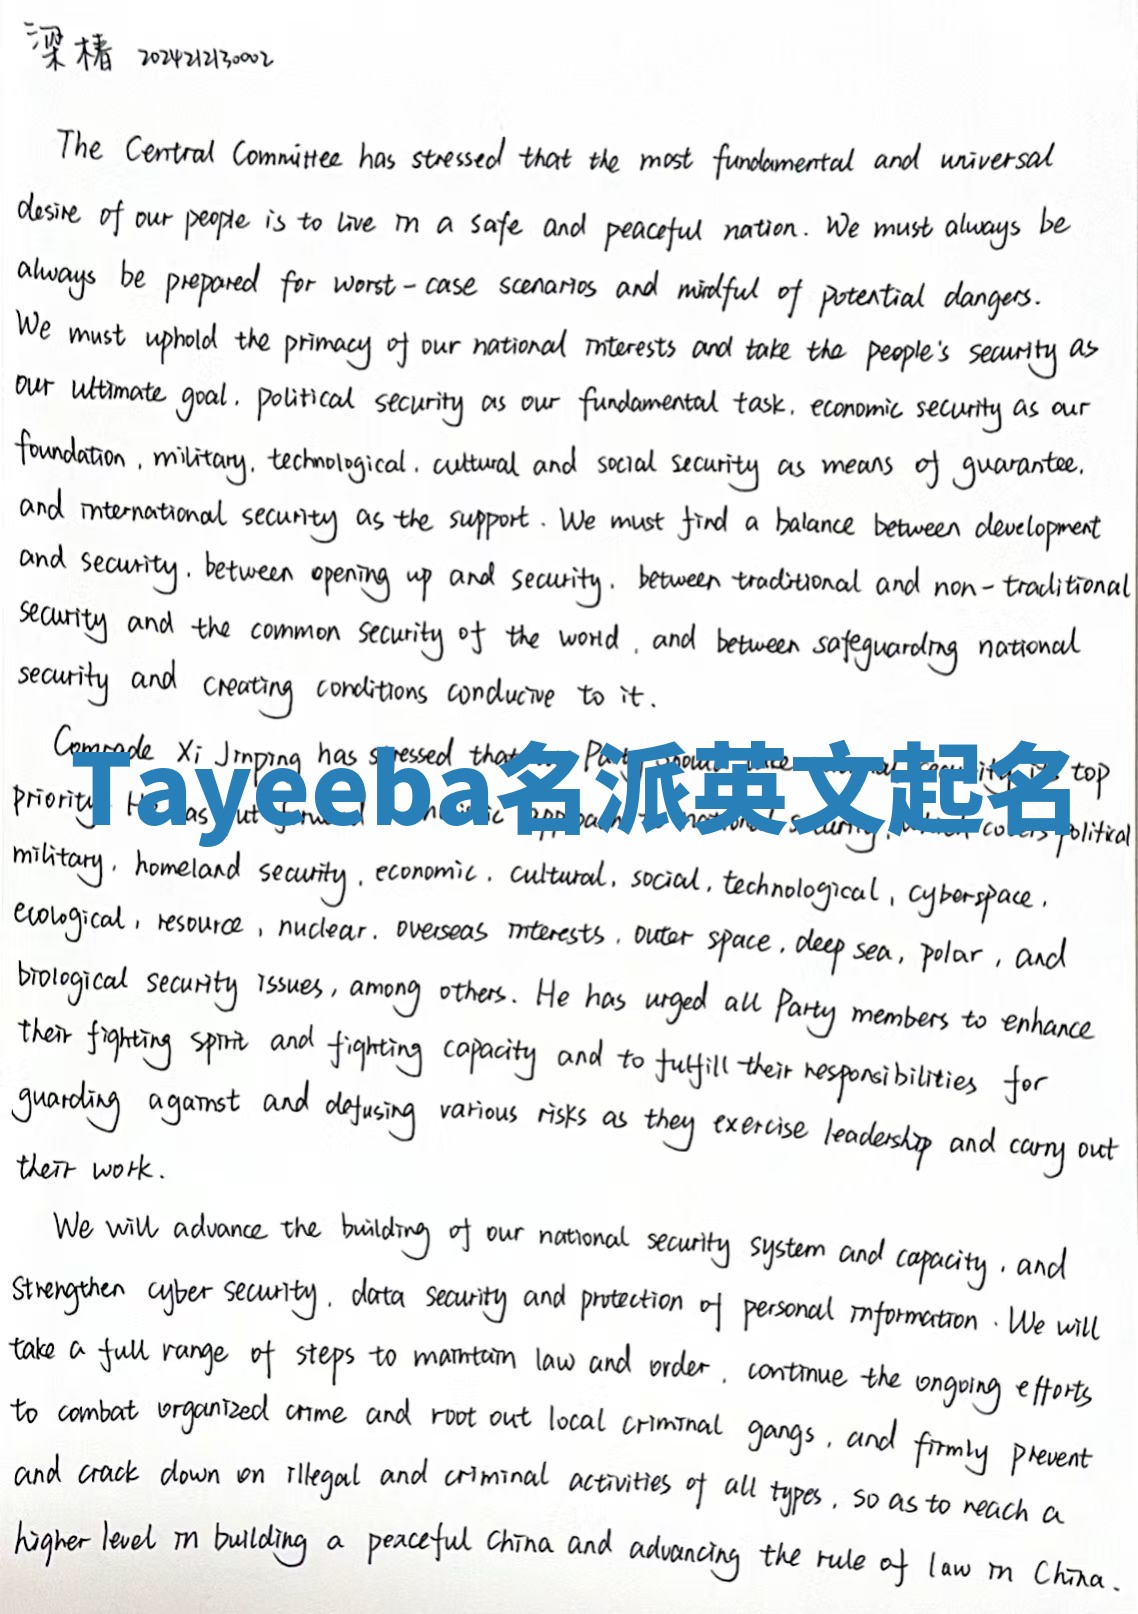 梁椿 2024212130002
The Central Committee has stressed that the most fundamental and universal
desire of our people is to live in a safe and peaceful nation. We must always be
always be prepared for worst-case scenarios and mindful of potential dangers.
We must uphold the primacy of our national interests and take the people's security as
our ultimate goal, political security as our fundamental task, economic security as our
foundation, military, technological, cultural and social security as means of guarantee,
and international security as the support. We must find a balance between development
and security, between opening up and security, between traditional and non-traditional
security and the common security of the world, and between safeguarding national
security and creating conditions conducive to it.
Comrade Xi Jinping has stressed that Party should security its top
Tayeeba名派英文起名
priority. He has put approach to national security, which covers political
military, homeland security, economic, cultural, social, technological, cyberspace,
ecological, resource, nuclear, overseas interests, outer space, deep sea, polar, and
biological security issues, among others. He has urged all Party members to enhance
their fighting spirit and fighting capacity and to fulfill their responsibilities for
guarding against and defusing various risks as they exercise leadership and carry out
their work.
We will advance the building of our national security system and capacity, and
strengthen cyber security, data security and protection of personal information. We will
take a full range of steps to maintain law and order, continue the ongoing efforts
to combat organized crime and root out local criminal gangs, and firmly prevent
and crack down on illegal and criminal activities of all types, so as to reach a
higher level in building a peaceful China and advancing the rule of law in China.